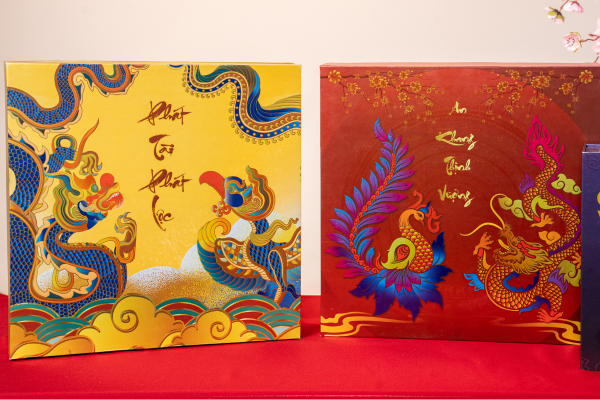 Phát
Tài
Phát
Lộc
An
Khang
Thịnh
Vượng